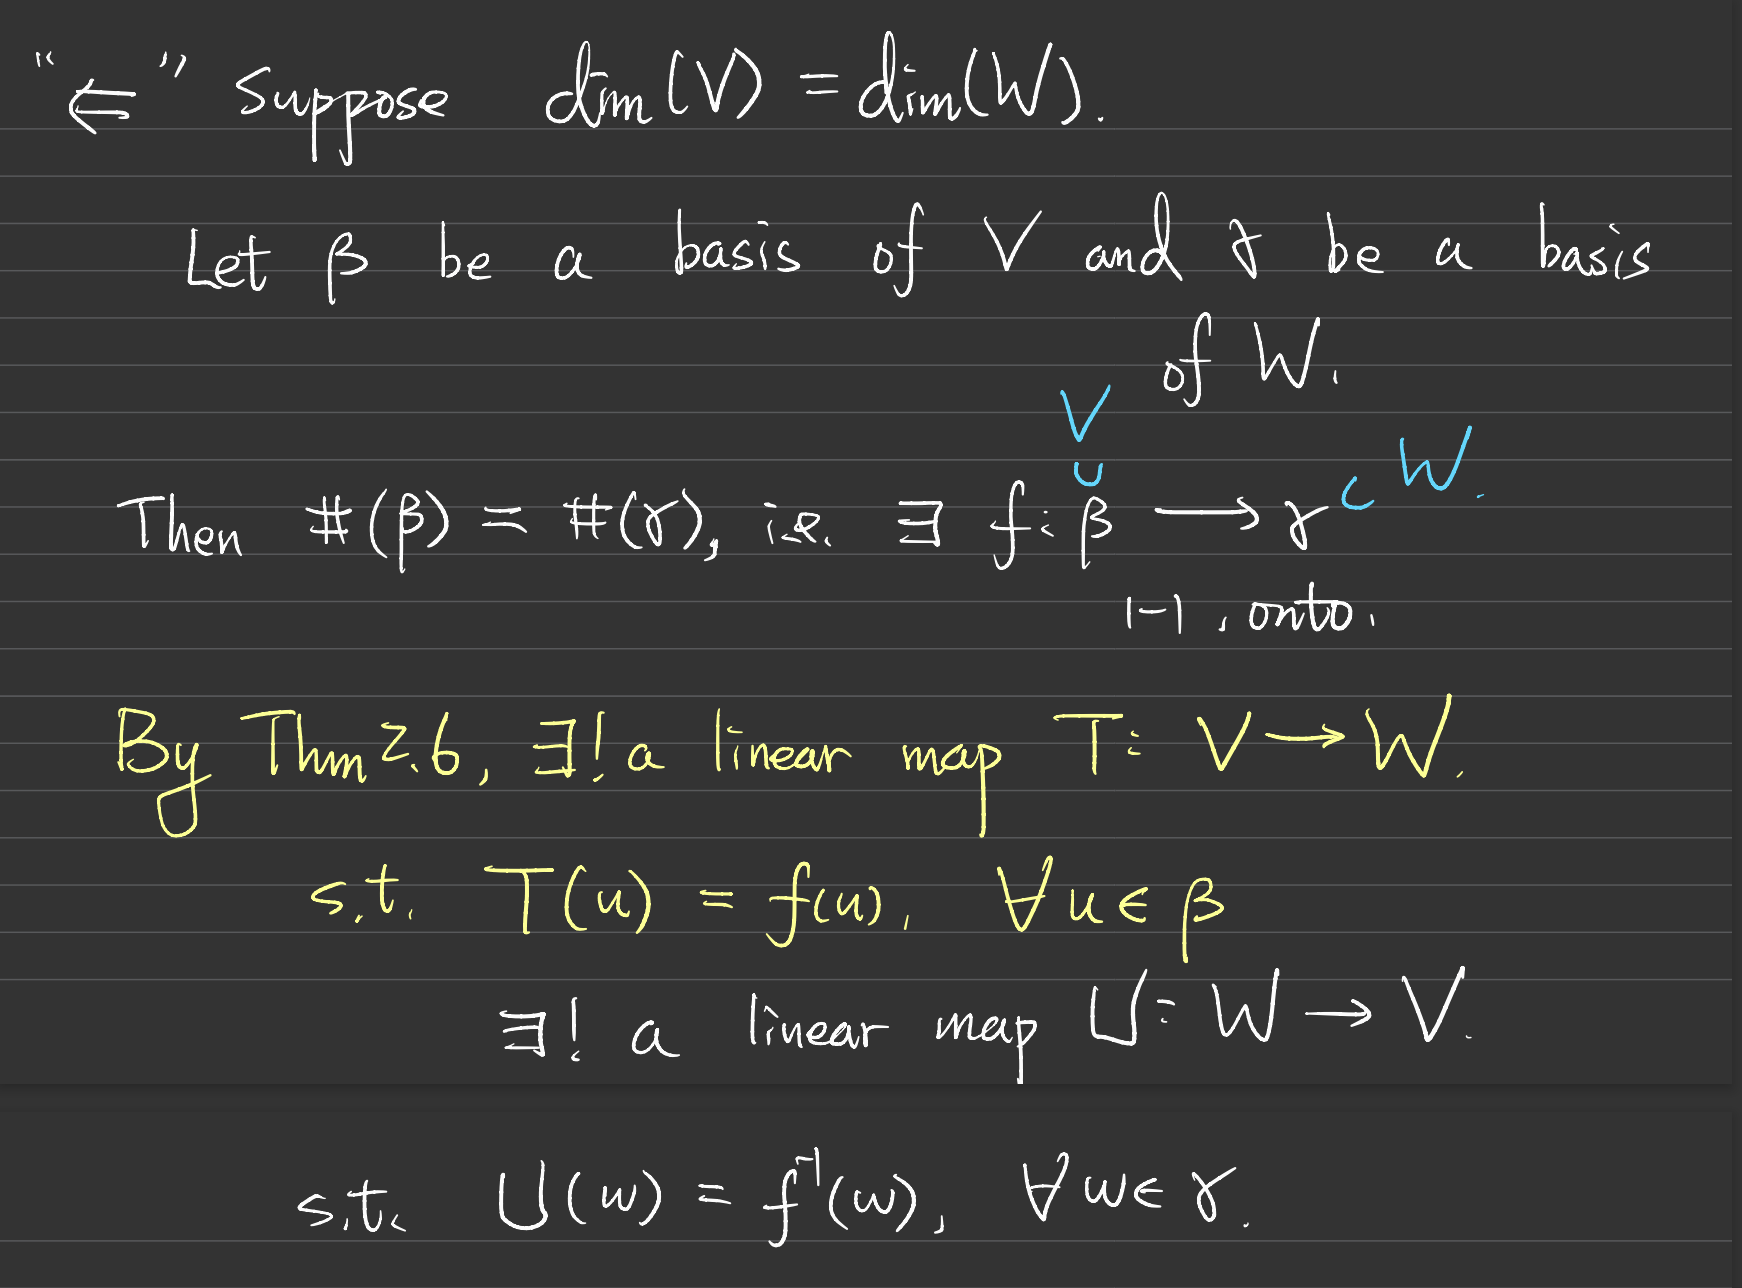 "⇐" Suppose dim(V) = dim(W).
Let β be a basis of V and γ be a basis
of W.
V
∪
⊂ W.
Then #(β) = #(γ), i.e. ∃ f: β → γ
1-1, onto.
By Thm 2.6, ∃! a linear map T: V → W.
s.t. T(u) = f(u), ∀u∈β
∃! a linear map U: W → V.
s.t. U(w) = f⁻¹(w), ∀w∈γ.